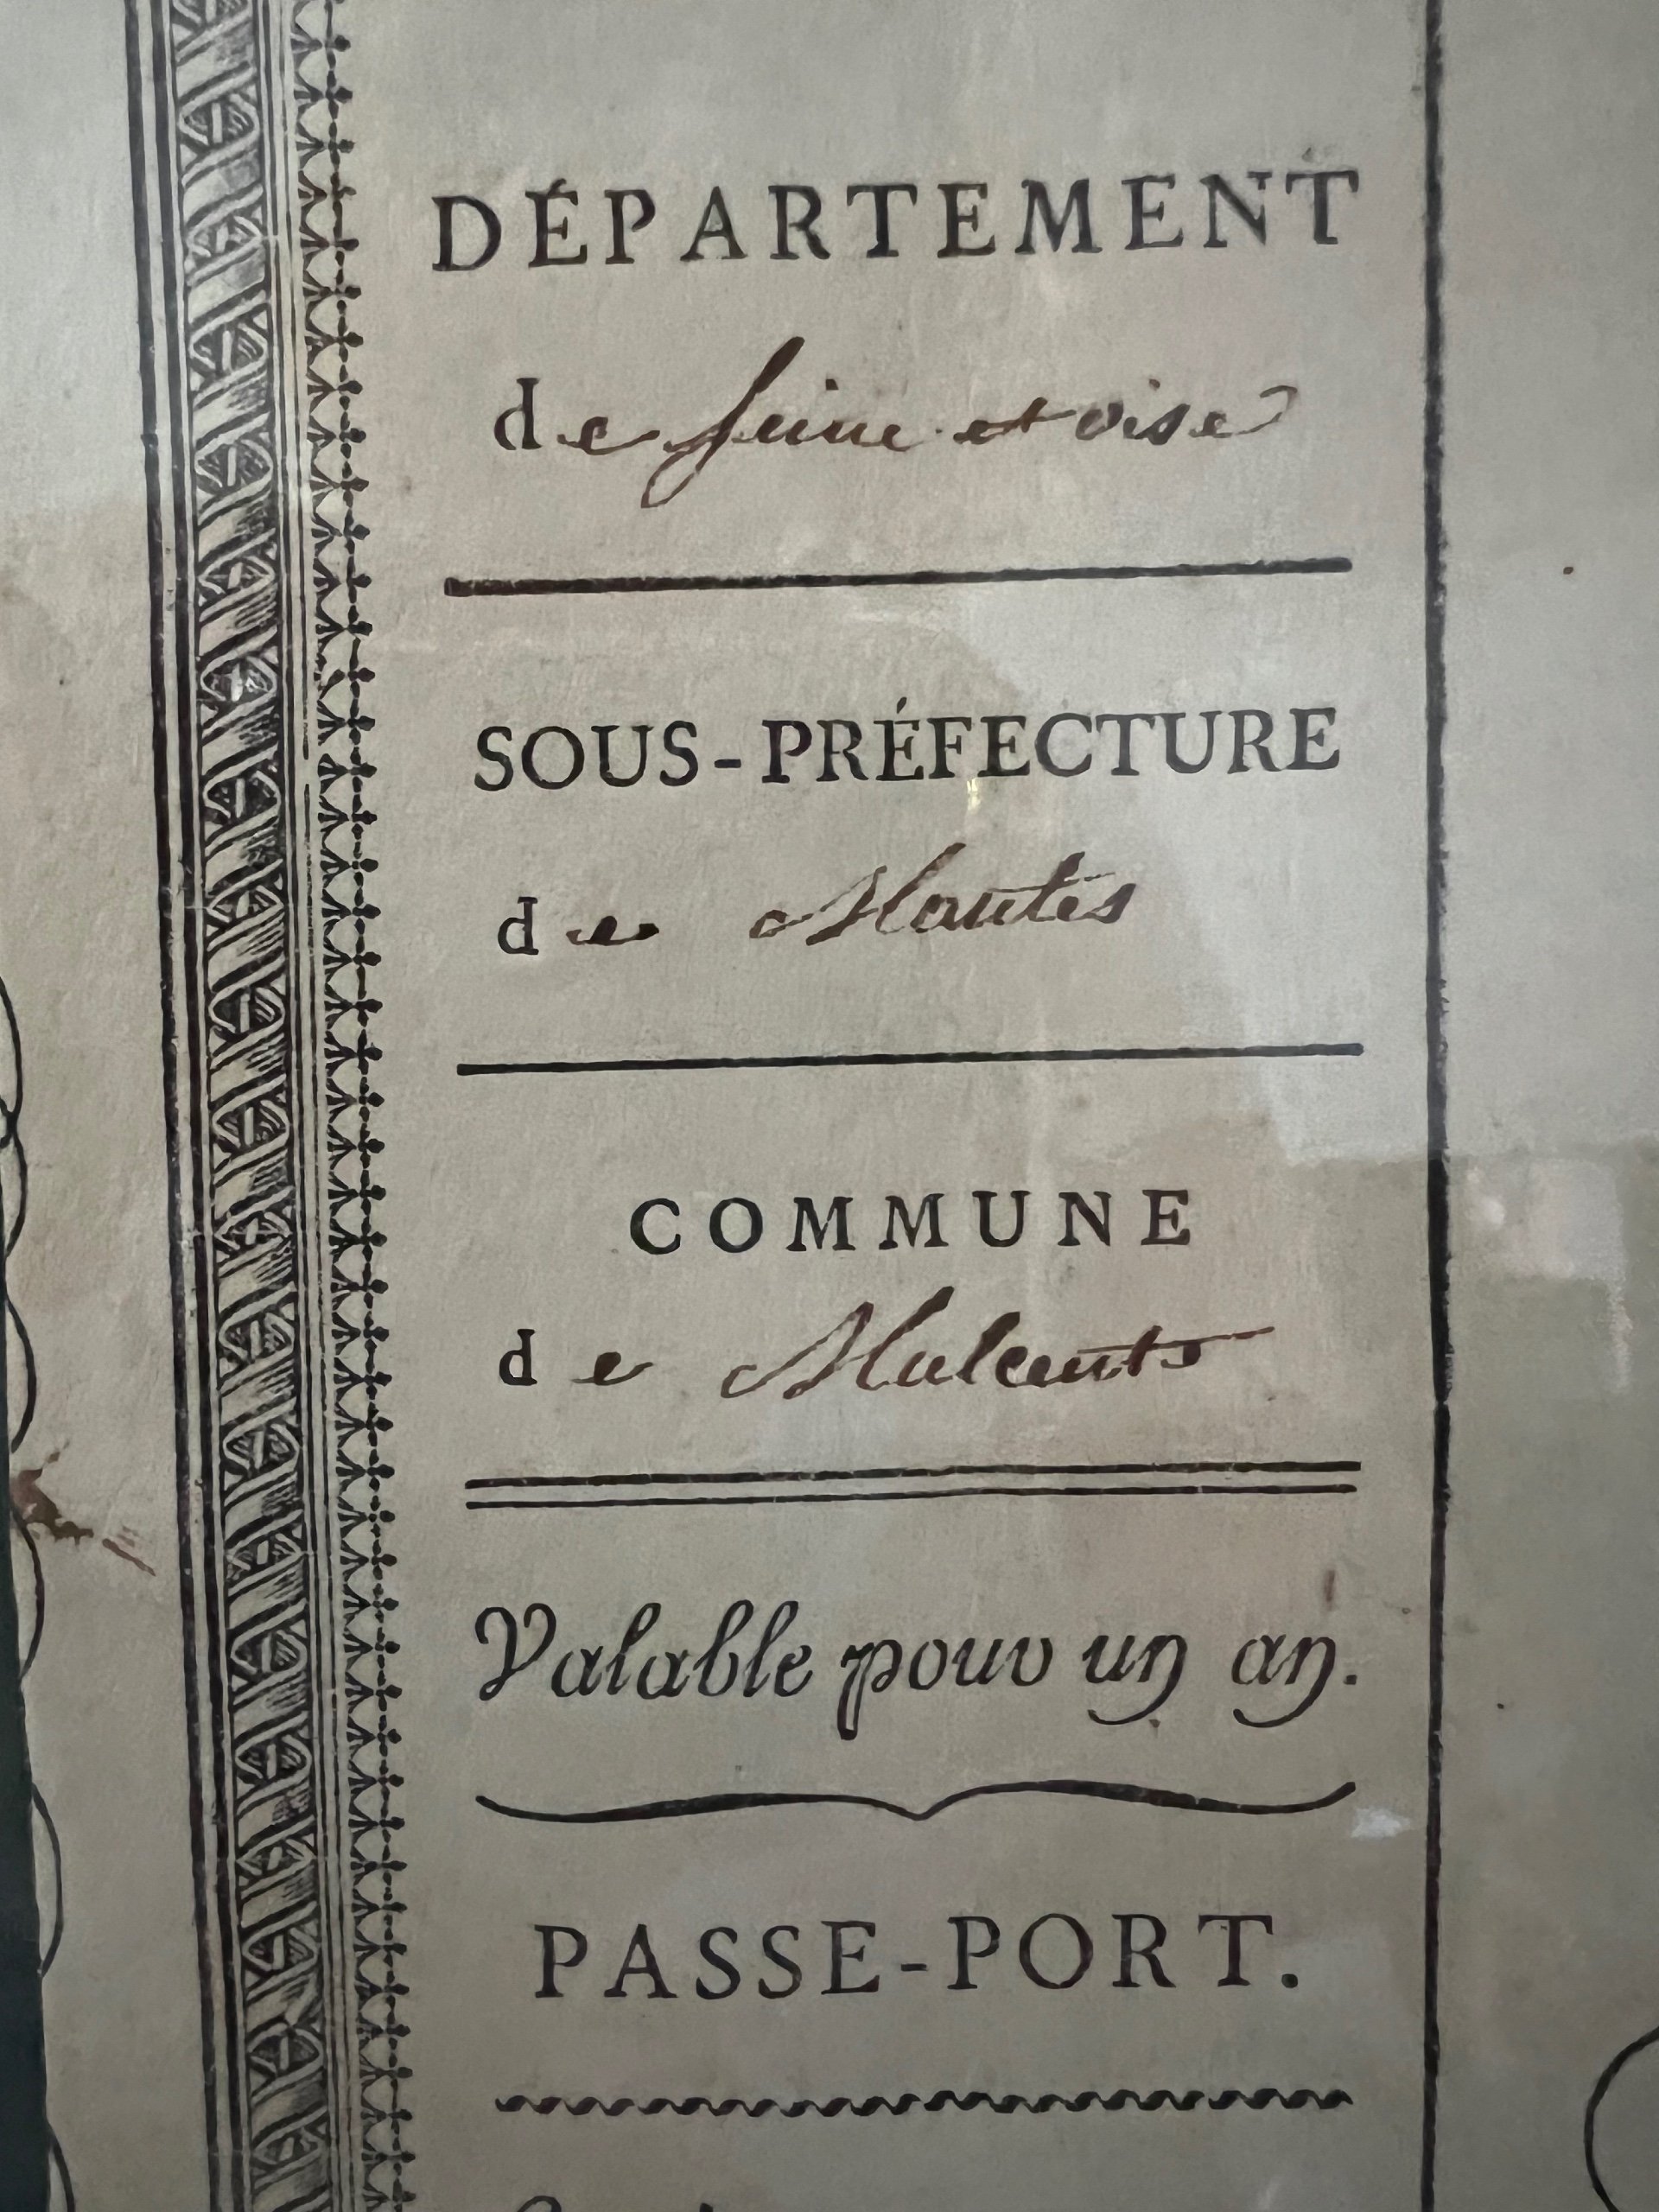 DÉPARTEMENT
de seine et oise
SOUS-PRÉFECTURE
de Mantes
COMMUNE
de Mulcents
Valable pour un an.
PASSE-PORT.